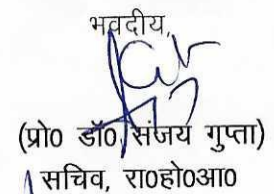 भवदीय,
(प्रो० डॉ० संजय गुप्ता)
सचिव, रा०हो०आ०